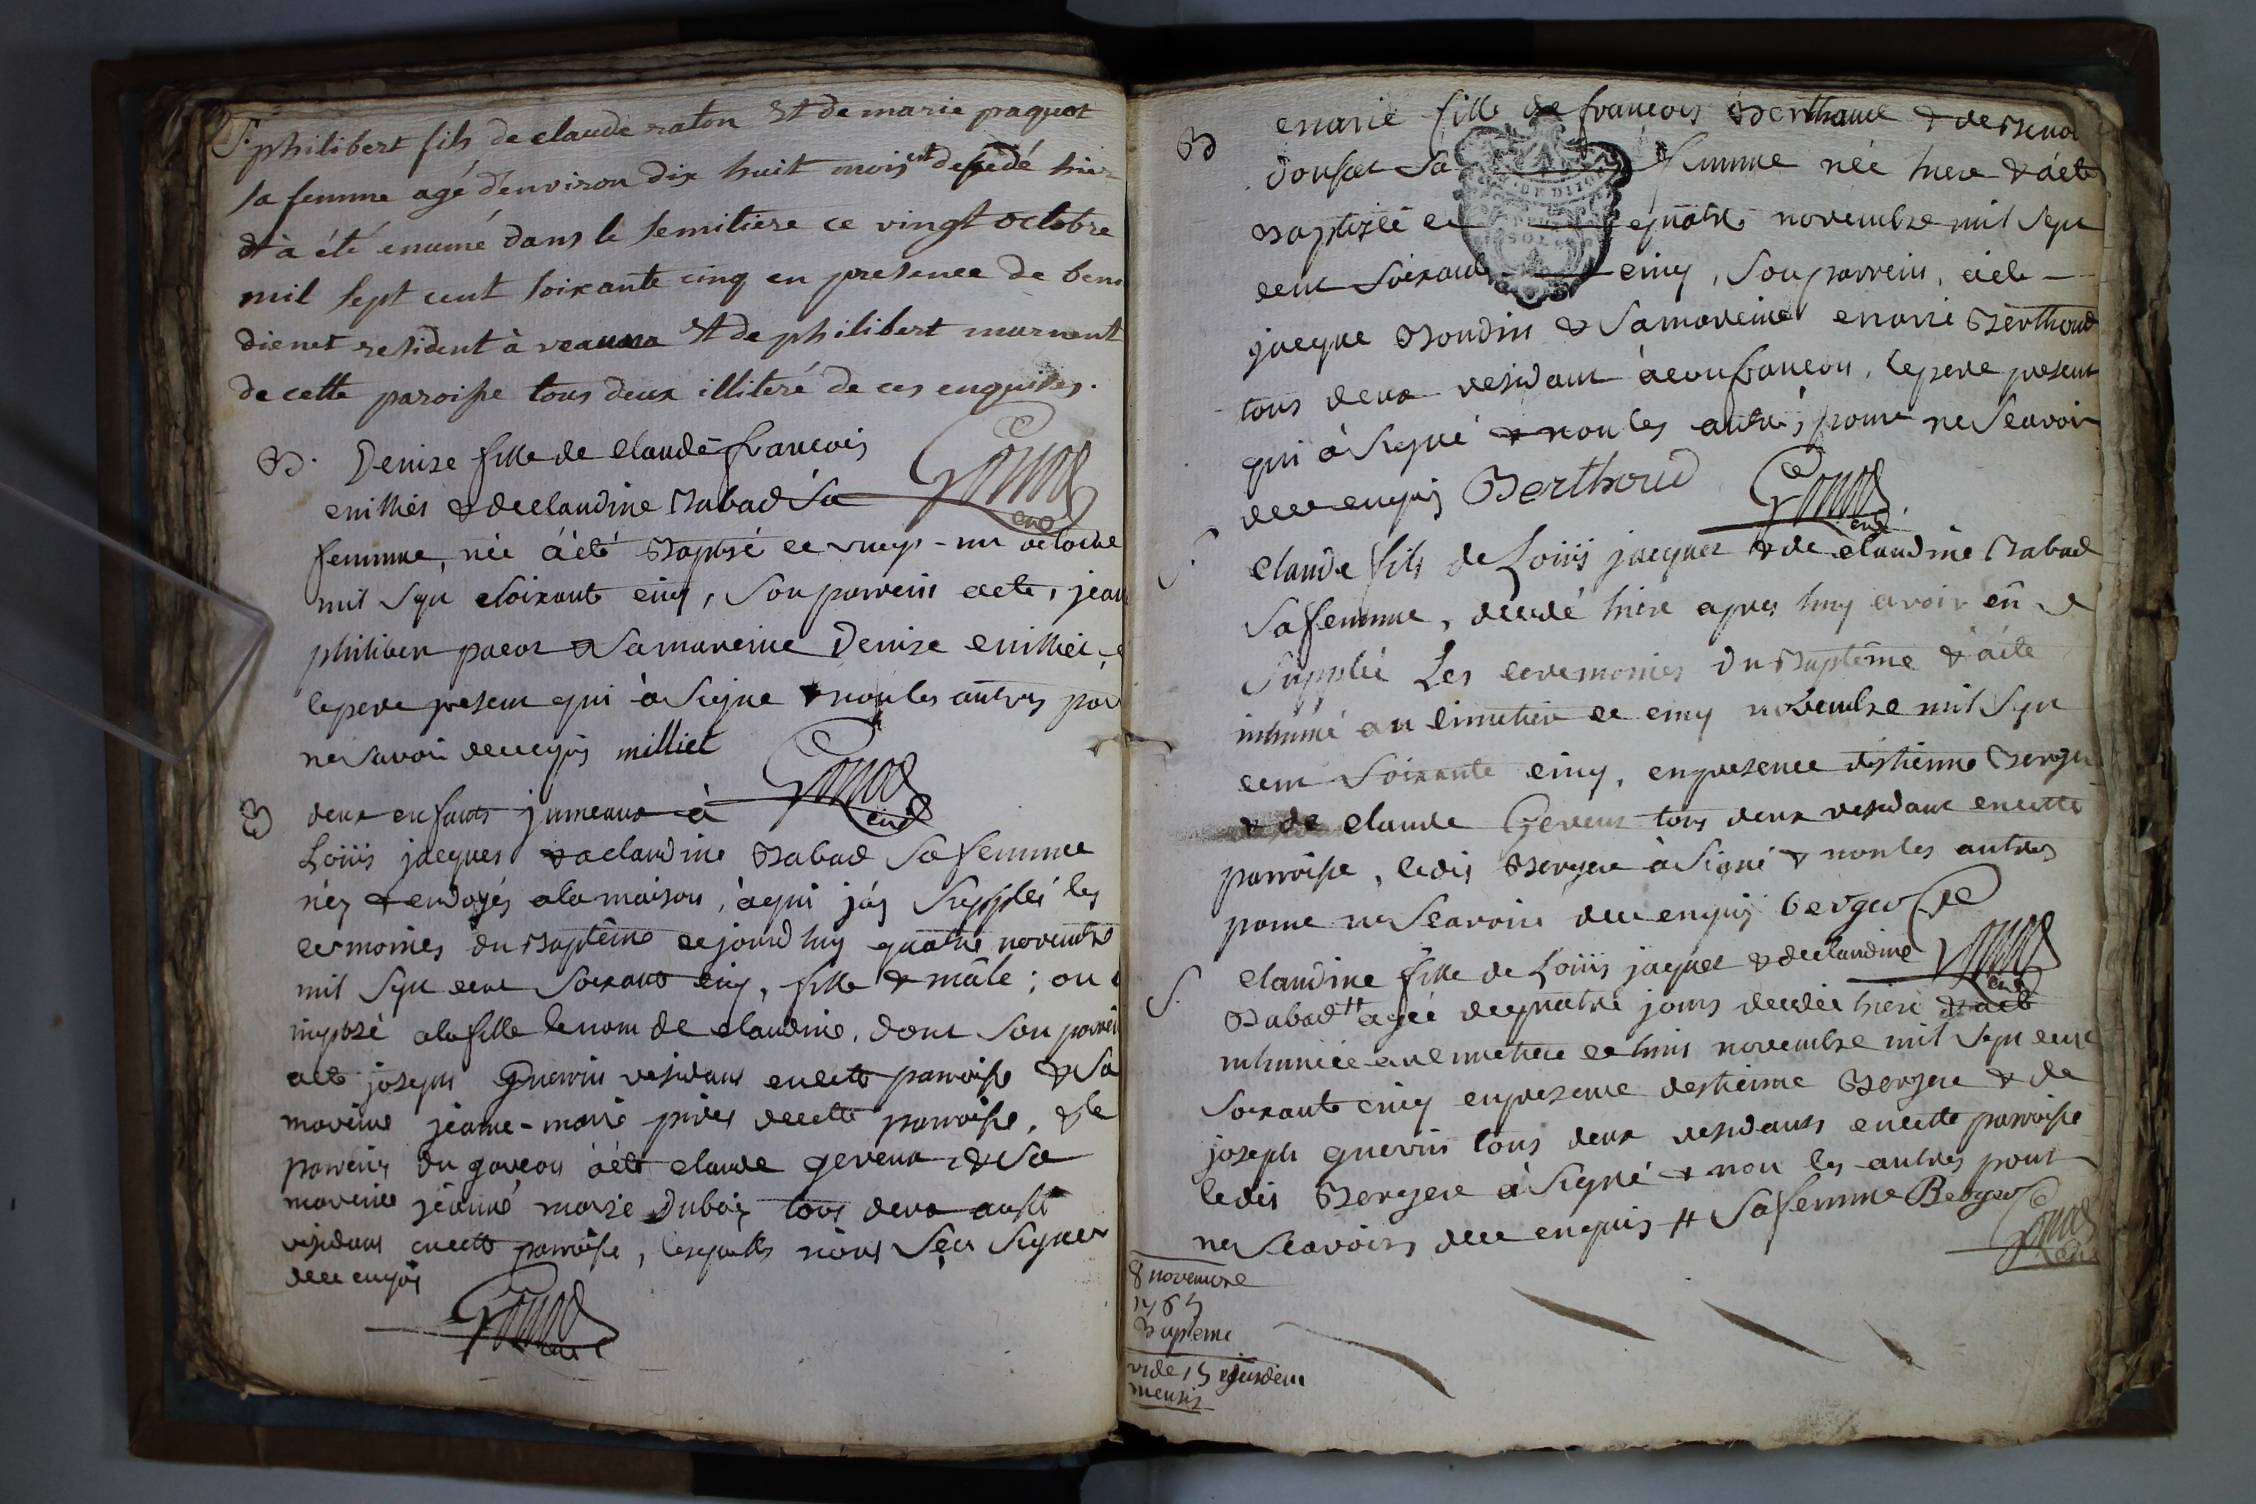 S. philibert fils de claude raton Et de marie paquot
sa femme agé d'environ dix huit mois est desedé hier
Et à été enumé dans le semitiere ce vingt octobre
mil sept cent soixante cinq en presence de beno
dienet resident à veaux Et de philibert murnent
de cette paroisse tous deux illiteré de ces enquises.
B. Denize fille de claude françois
milliet & de claudine Babad sa
femme, née à été Baptisé ce vingt-un octobre
mil sept soixante cinq, son parrein a été, jean
philibert & sa mareine Denize milliet,
le pere present qui à signe & non les autres pour
ne savoir de ce enquis milliet
B deux enfants jumeaux à
Loüis jacques & a claudine Babad sa femme
néz & endoyés a la maison, à qui j'ay supplée les
ceremoines du Baptême ce jourd huy quatre novembre
mil sept cent soixante cinq, fille & mâle; on a
imposé a la fille le nom de claudine, dont son parrein
a été joseph Guerin residant en cette parroisse & sa
mareine jeanne-marie de cette parroisse, & le
parrein du garçon à été claude geveux & sa
mareine jeanne marie Dubois tous deux aussi
residans en cette parroisse, lesquells n'ont sçu signer
de ce enquis
B marie fille de françois Berthaud & de Benoi
sa femme née hiere & à été
Baptizée ce quatre novembre mil sept
cent soixante cinq, son parrein, a été
jacque Bondin & sa mareine marie Berthoud
tous deux residant a confrançon, le pere present
qui à signé & non les autres pour ne sçavoir
de ce enquis Berthoud
S. claude fils de Loüis jacques & de claudine Babad
sa femme, decedé hiere apres luy avoir
supplée Les ceremonies du Baptême & à été
inhumé au cimetiere ce cinq novembre mil sept
cent soixante cinq, en presence d'estienne Berger
& de claude Geveux tous deux residant en cette
parroisse, ledis Bergere à signé & non les autres
pour ne sçavoir de ce enquis berger
S. claudine fille de Loüis jaques & de claudine
Babad # agée de quatre jours decedée hiere & à été
inhumée au cimetiere ce huis novembre mil sept cent
soixante cinq en presence d'estienne Bergere & de
joseph guerin tous deux residants en cette parroisse
ledis Bergere à signé & non les autres pour
ne sçavoirs de ce enquis # sa femme Berger
8 novembre
1765
Bapteme
vide 15 ejusdem
mensis